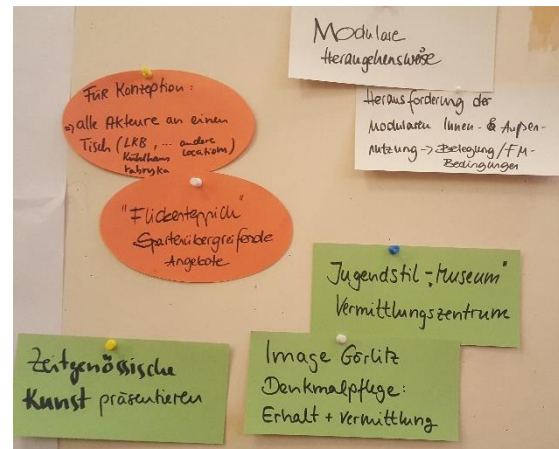 Modulare
Herangehensweise
Herausforderung der
modularen Innen- & Außen-
nutzung -> Belegung/FM-
Bedingungen
Für Konzeption:
=> alle Akteure an einen
Tisch (LKB, ... andere
Kühlhaus locations)
rabryka
"Flickenteppich"
Spartenübergreifende
Angebote
Jugendstil-"Museum"
Vermittlungszentrum
Zeitgenössische
Kunst präsentieren
Image Görlitz
Denkmalpflege:
Erhalt + Vermittlung